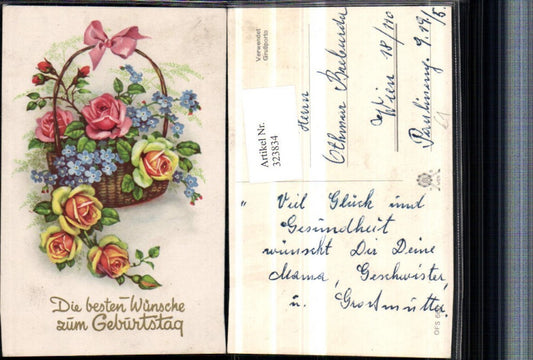 Die besten Wünsche
zum Geburtstag
Verwendet
Großporto
Artikel Nr.
323834
Herrn
Othmar
Wien 18/110
9.19/5.
"Viel Glück und
Gesundheit
wünscht Dir Deine
Mama, Geschwister,
u. Großmutter.
OFS